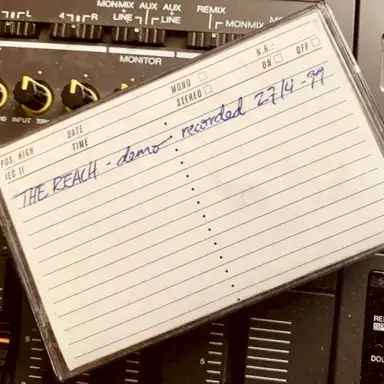 MONMIX AUX AUX REMIX
LINE LINE MONMIX
4 L R
MONITOR
INPUT
POS. HIGH
IEC II
DATE
TIME
MONO
STEREO
N.R.:
ON OFF
THE REACH - demo recorded 27/4-99
5
5